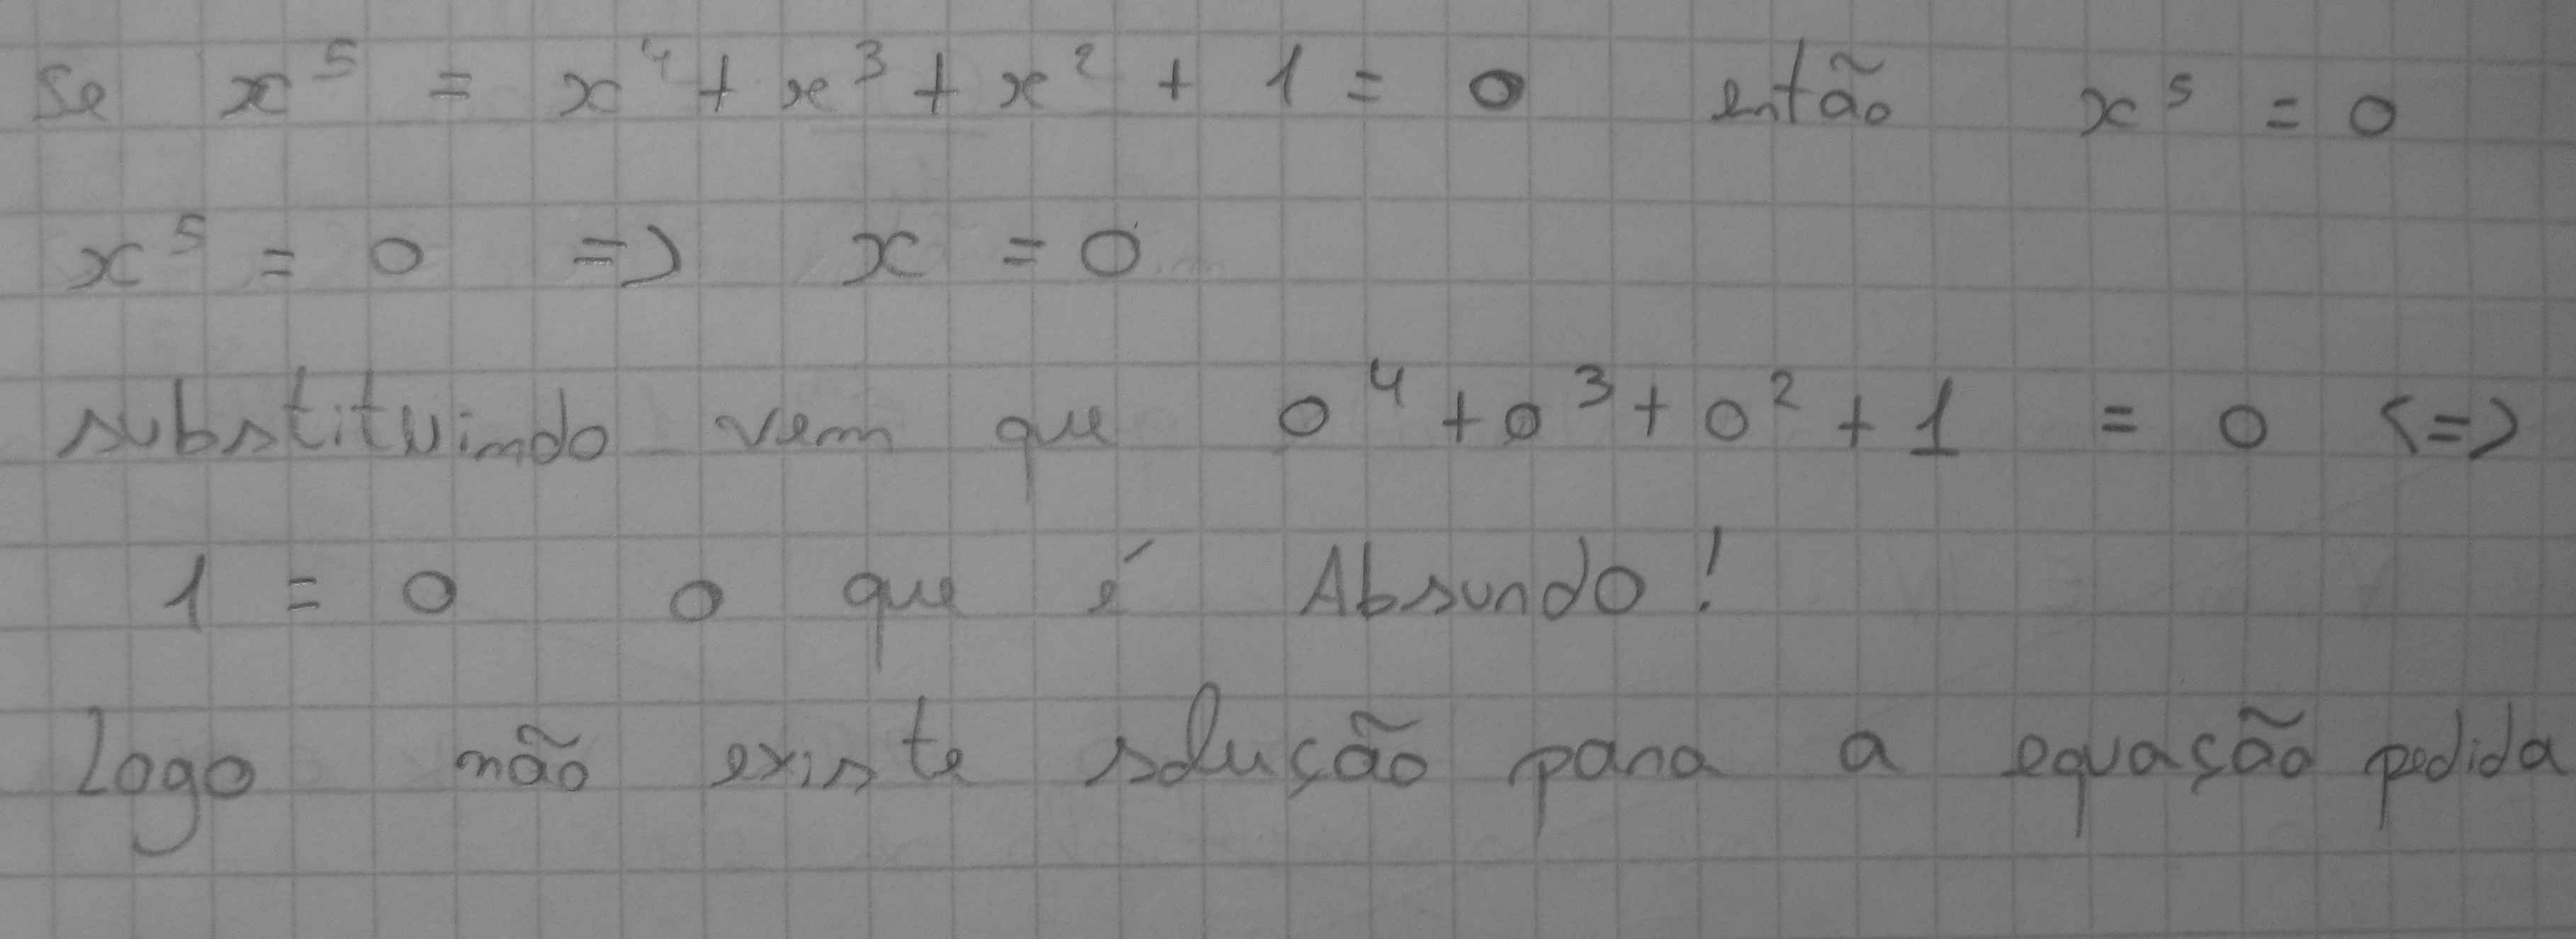 Se x⁵ = x⁴ + x³ + x² + 1 = 0 então x⁵ = 0
x⁵ = 0 => x = 0
substituindo vem que 0⁴ + 0³ + 0² + 1 = 0 <=>
1 = 0 o que é Absurdo!
Logo não existe solução para a equação pedida